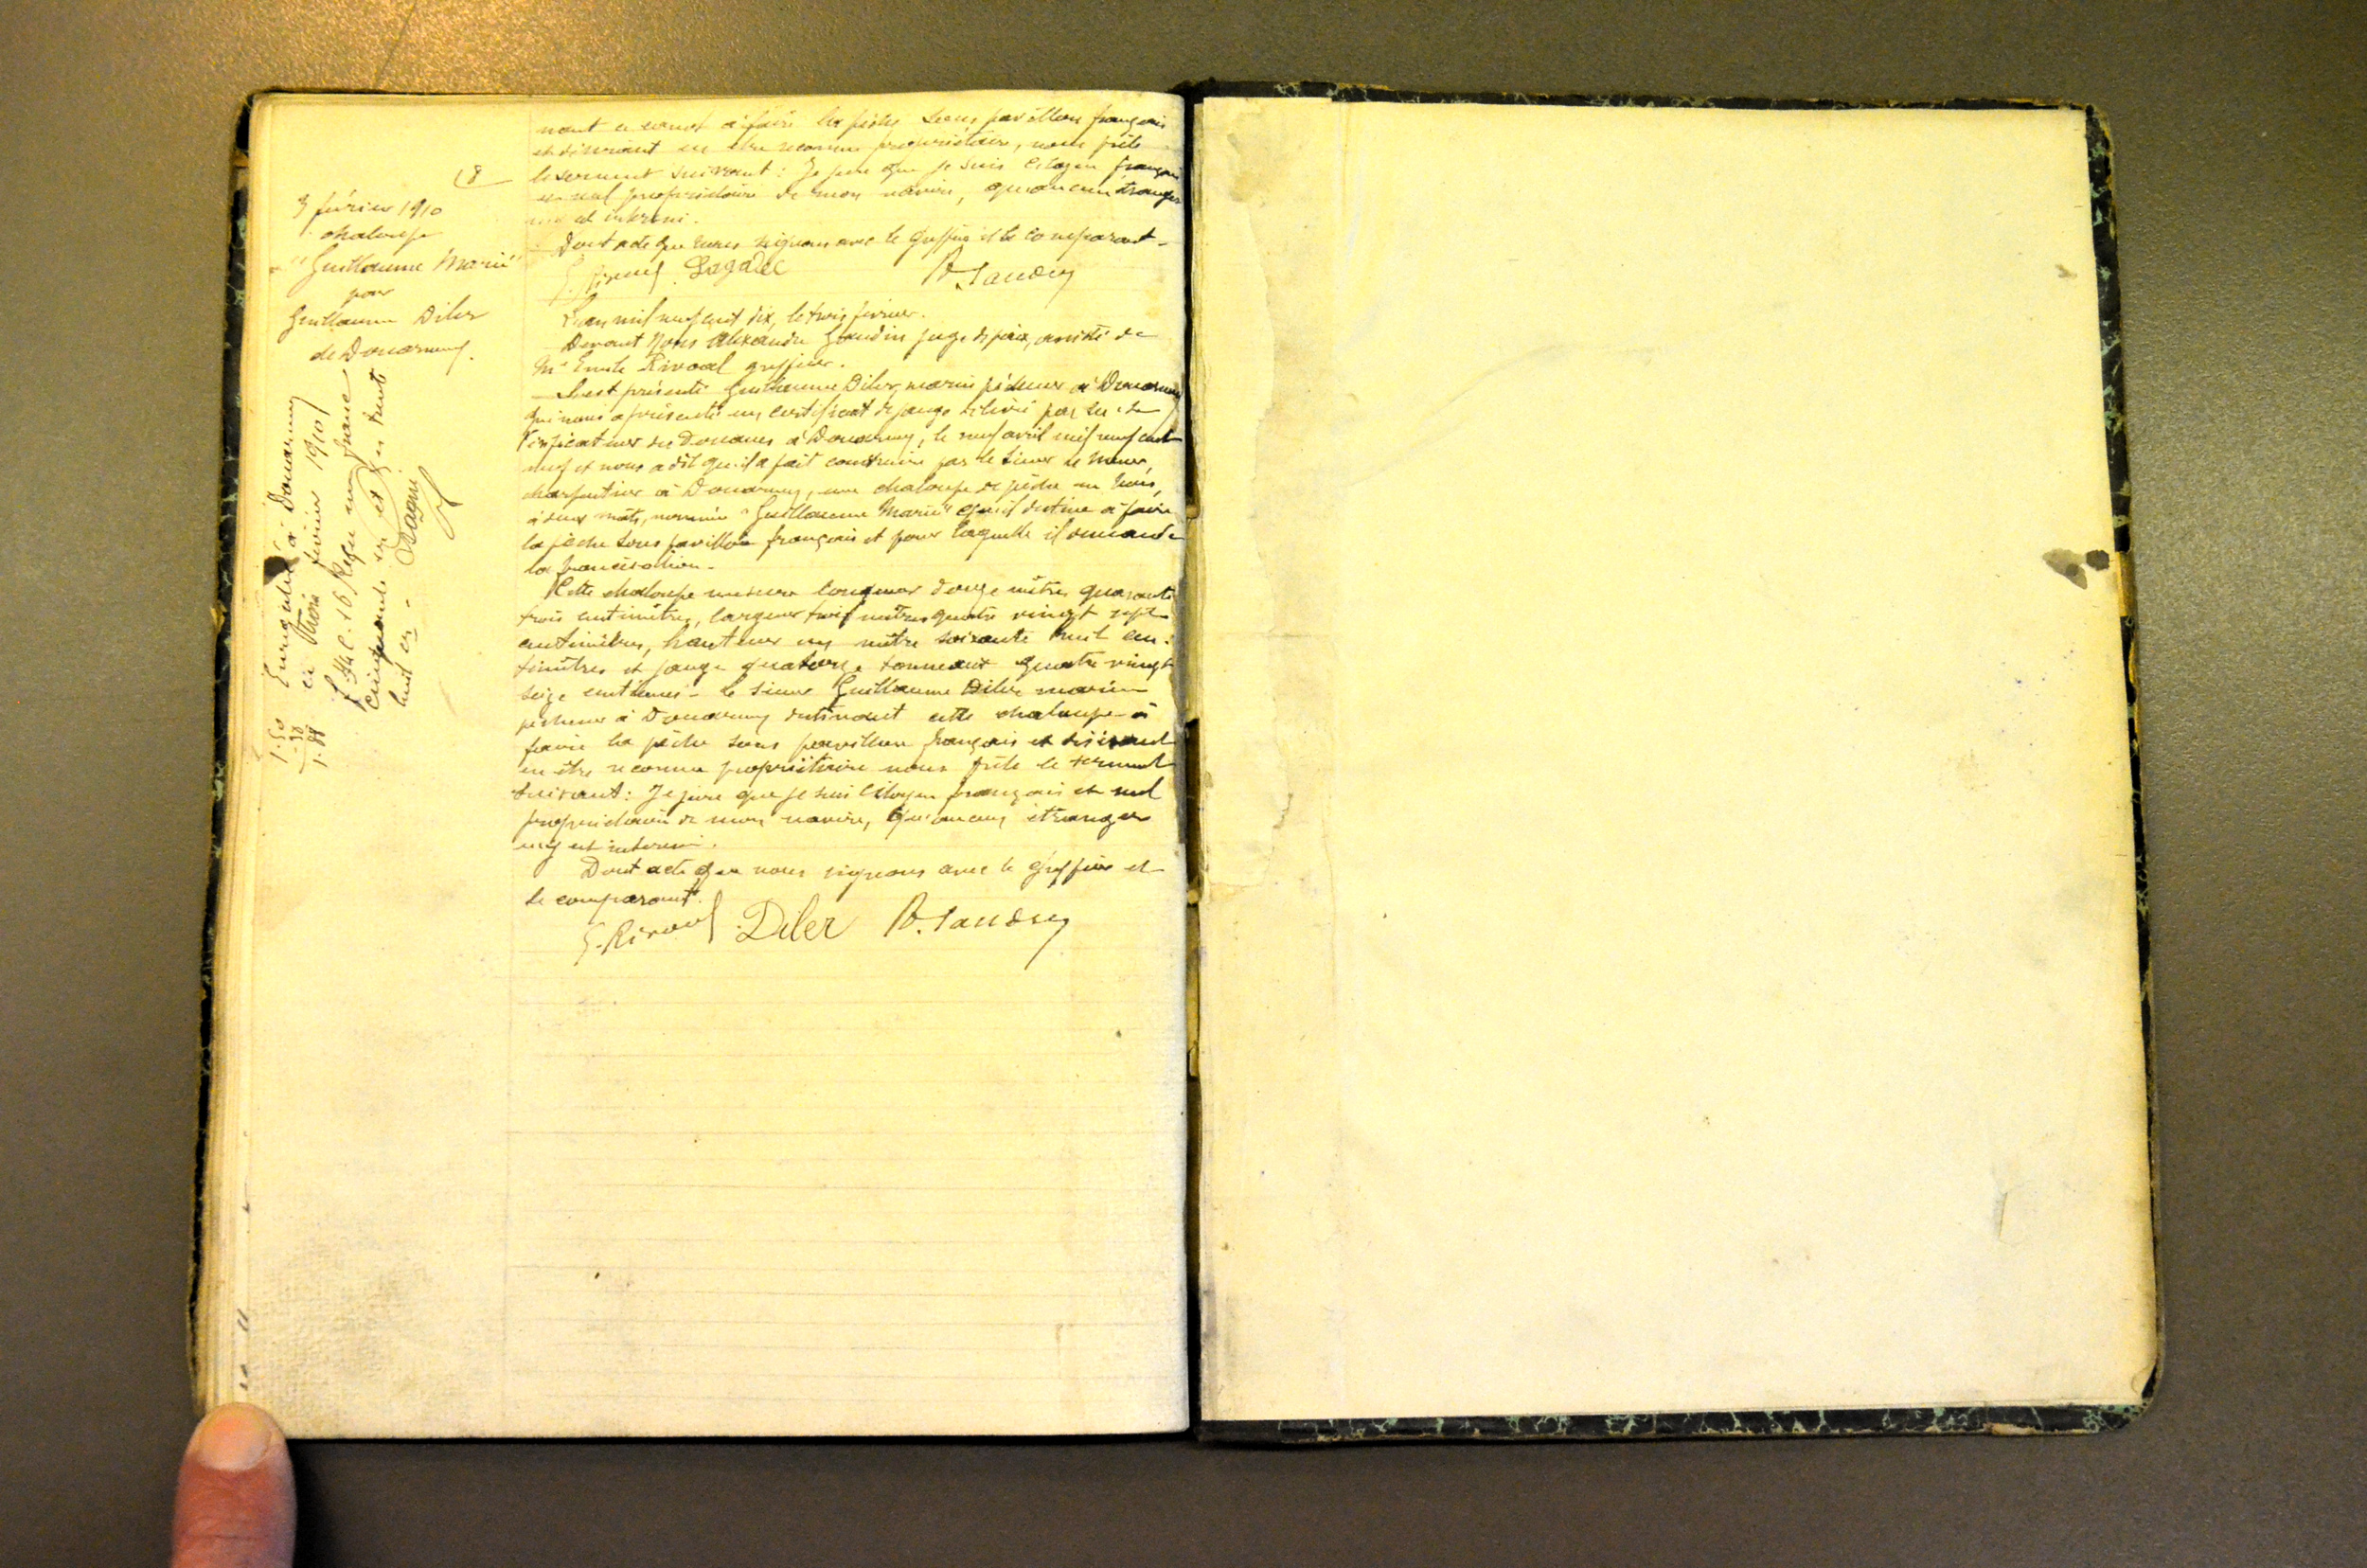 nant ce canot à faire la pêche sous pavillon français
et désirant en être reconnu propriétaire, nous prête
le serment suivant : Je jure que je suis citoyen français
et seul propriétaire de mon navire, qu'aucun étranger
n'y est intéressé.
Dont acte que nous signons avec le greffier et le comparant -
E. Rivoal Lagadec A. Gaudin
8
3 février 1910
chaloupe
"Guillaume Marie"
pour
Guillaume Diler
de Douarnenez.
L'an mil neuf cent dix, le trois février.
Devant Nous Alexandre Gaudin juge de paix, assisté de
Me Emile Rivoal greffier.
S'est présenté Guillaume Diler, marin pêcheur à Douarnenez
qui nous a présenté un certificat de jauge délivré par le
Vérificateur des Douanes à Douarnenez, le neuf avril mil neuf cent
neuf et nous a dit qu'il a fait construire par le sieur
charpentier à Douarnenez, une chaloupe de pêche en bois,
à deux mâts, nommée "Guillaume Marie" qu'il destine à faire
la pêche sous pavillon français et pour laquelle il demande
la francisation -
Cette chaloupe mesure longueur douze mètres quarante
trois centimètres, largeur trois mètres quatre vingt sept
centimètres, hauteur un mètre soixante huit cen-
timètres et jauge quatorze tonneaux quatre vingt
seize centièmes - le sieur Guillaume Diler marin
pêcheur à Douarnenez destinant cette chaloupe à
faire la pêche sous pavillon français et désirant
en être reconnu propriétaire nous prête le serment
suivant : Je jure que je suis citoyen français et seul
propriétaire de mon navire, qu'aucun étranger
n'y est intéressé.
Dont acte que nous signons avec le greffier et
le comparant.
E. Rivoal Diler A. Gaudin
Enregistré à Douarnenez
le trois février 1910
c. 16 Reçu un franc
cinquante
huit cs -
1.50
38
1.88